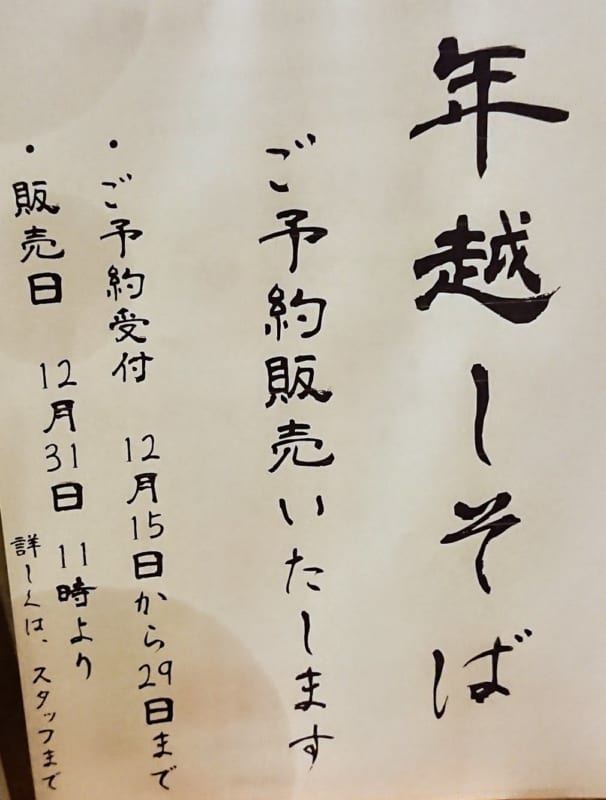 年越しそば
ご予約販売いたします
・ご予約受付 12月15日から29日まで
・販売日 12月31日 11時より
詳しくは、スタッフまで